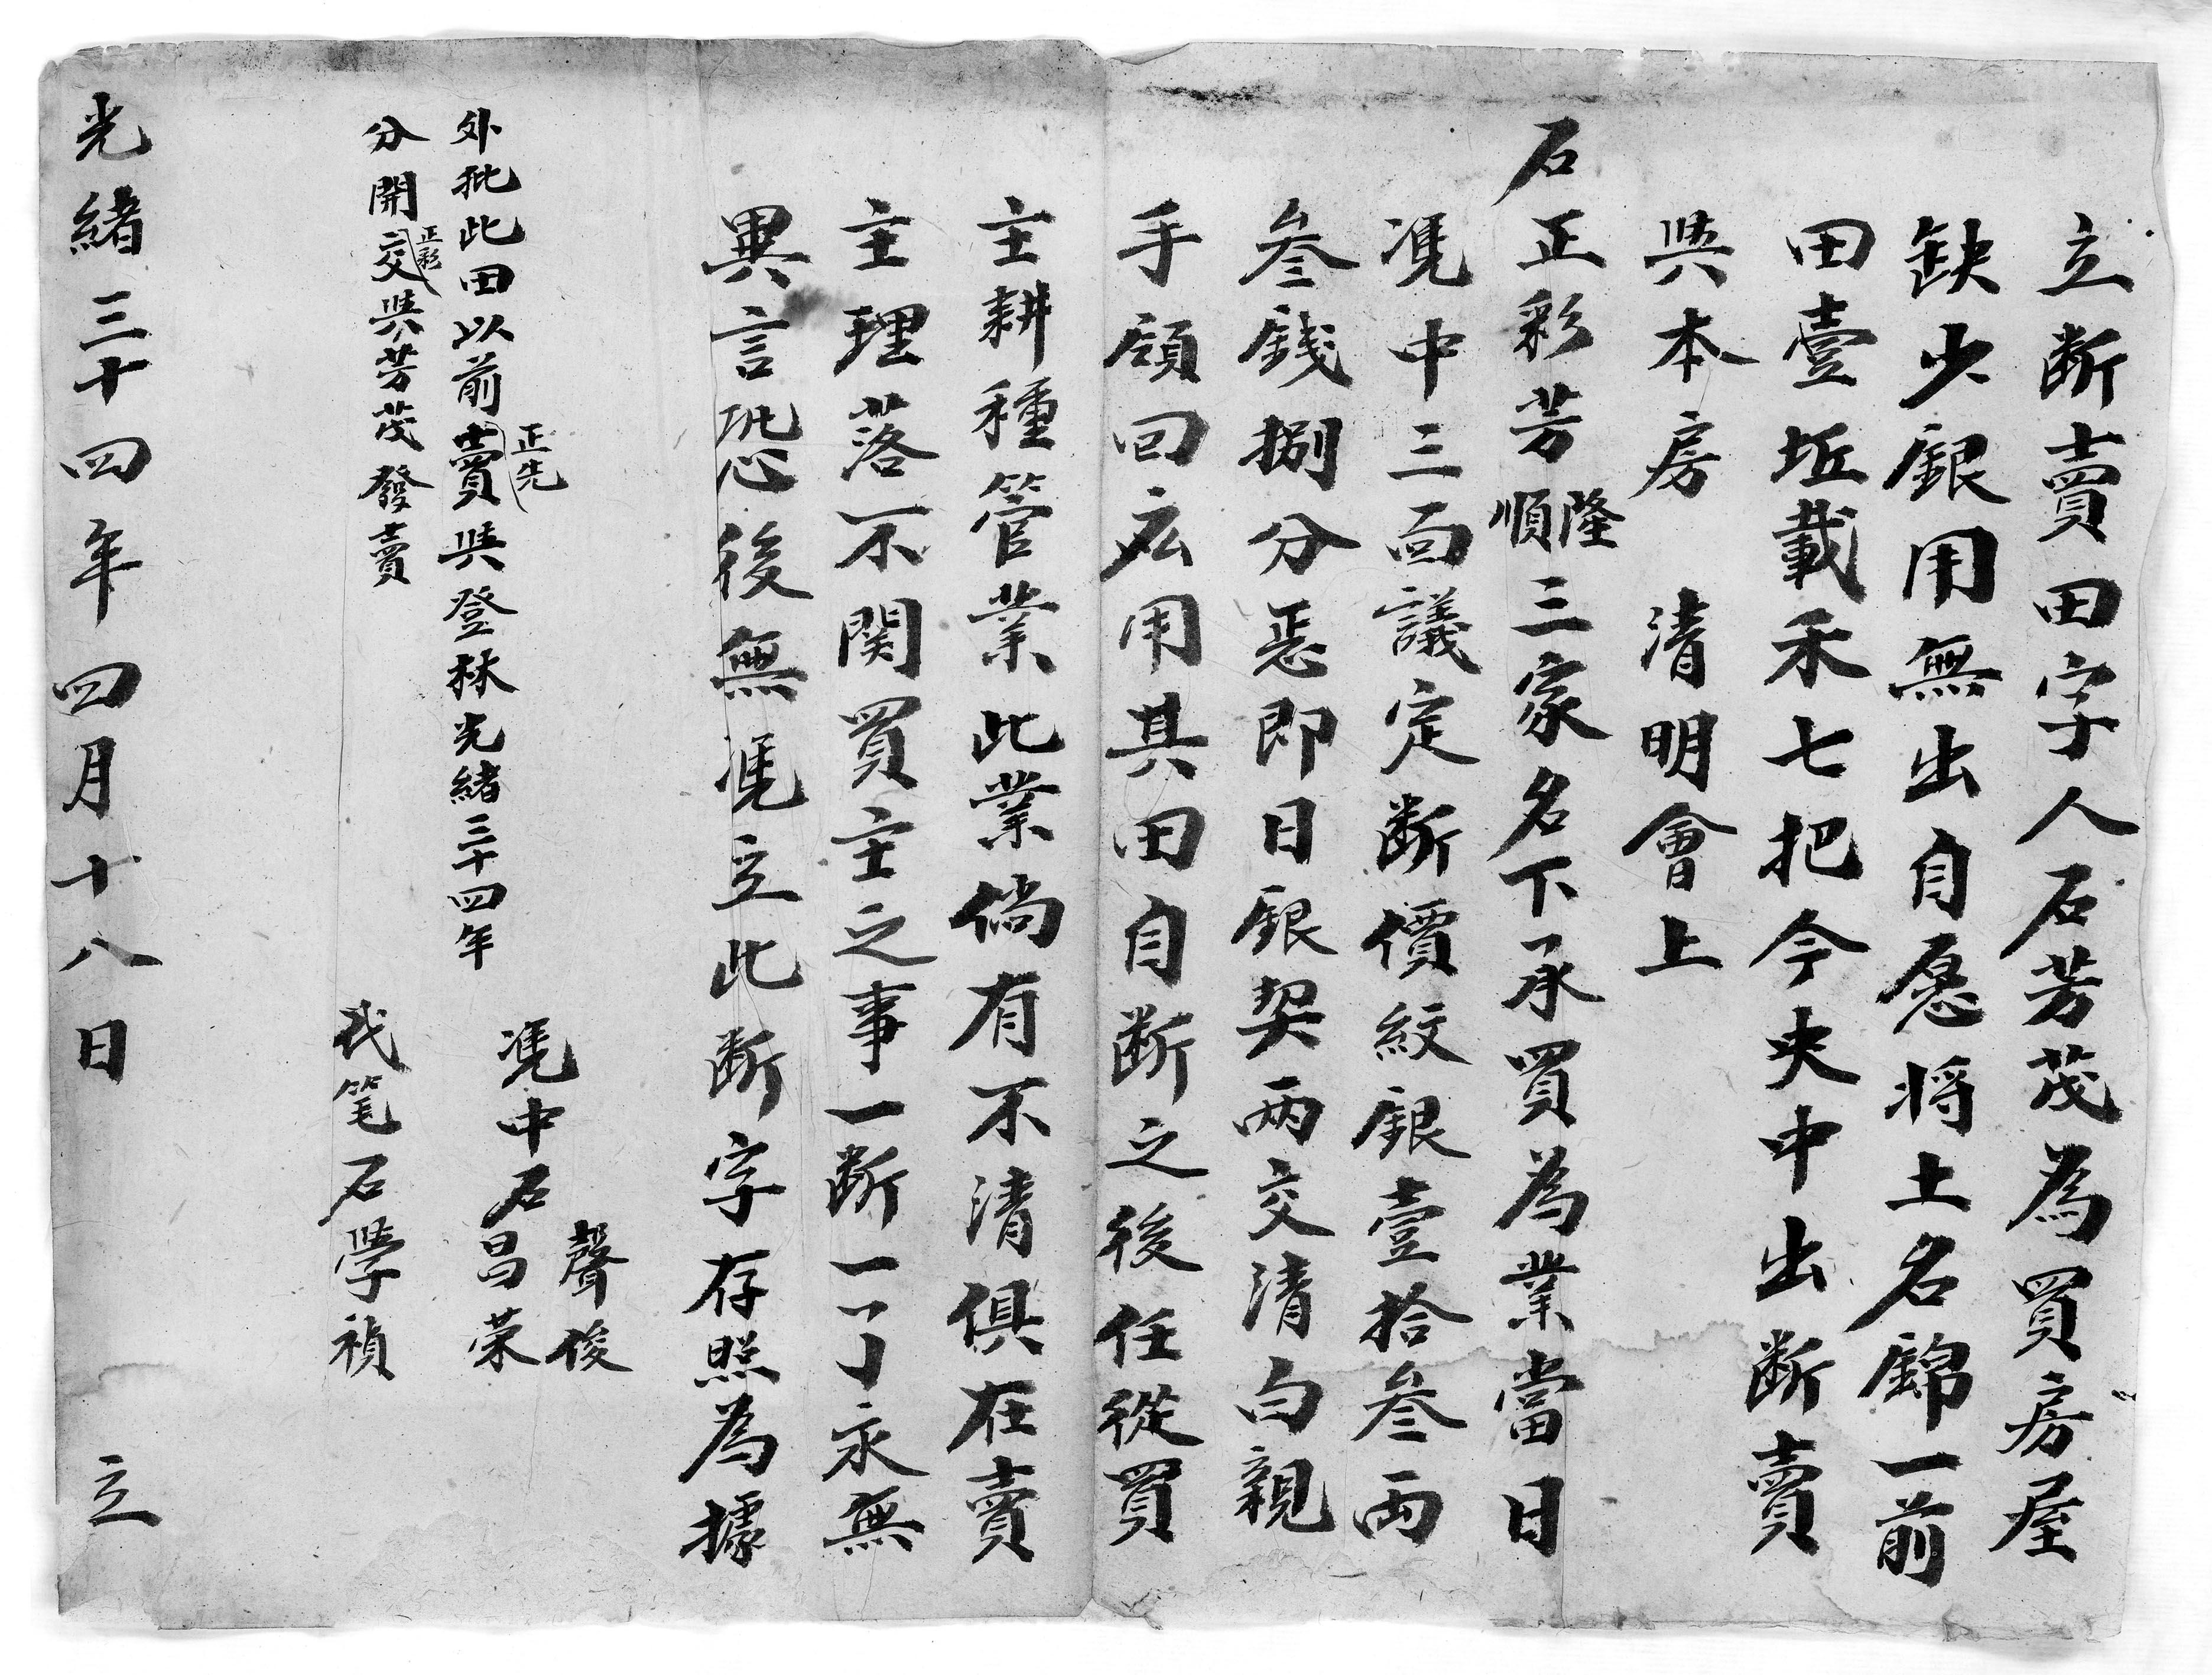 立断賣田字人石芳茂為買房屋
缺少銀用無出自愿将土名錦一前
田壹坵載禾七把今夬中出断賣
與本房 清明會上
石正彩芳隆順三家名下承買為業當日
凴中三面議定断價紋銀壹拾叁兩
叁錢捌分恶即日銀契兩交清白親
手領回应用其田自断之後任從買
主耕種管業此業倘有不清俱在賣
主理落不関買主之事一断一了永無
異言恐後無凴立此断字存照為據
外批此田以前正先賣與登林光緒三十四年
分開正彩交與芳茂發賣
凴中石昌荣
聲俊
代笔石學禎
光緒三十四年四月十八日 立